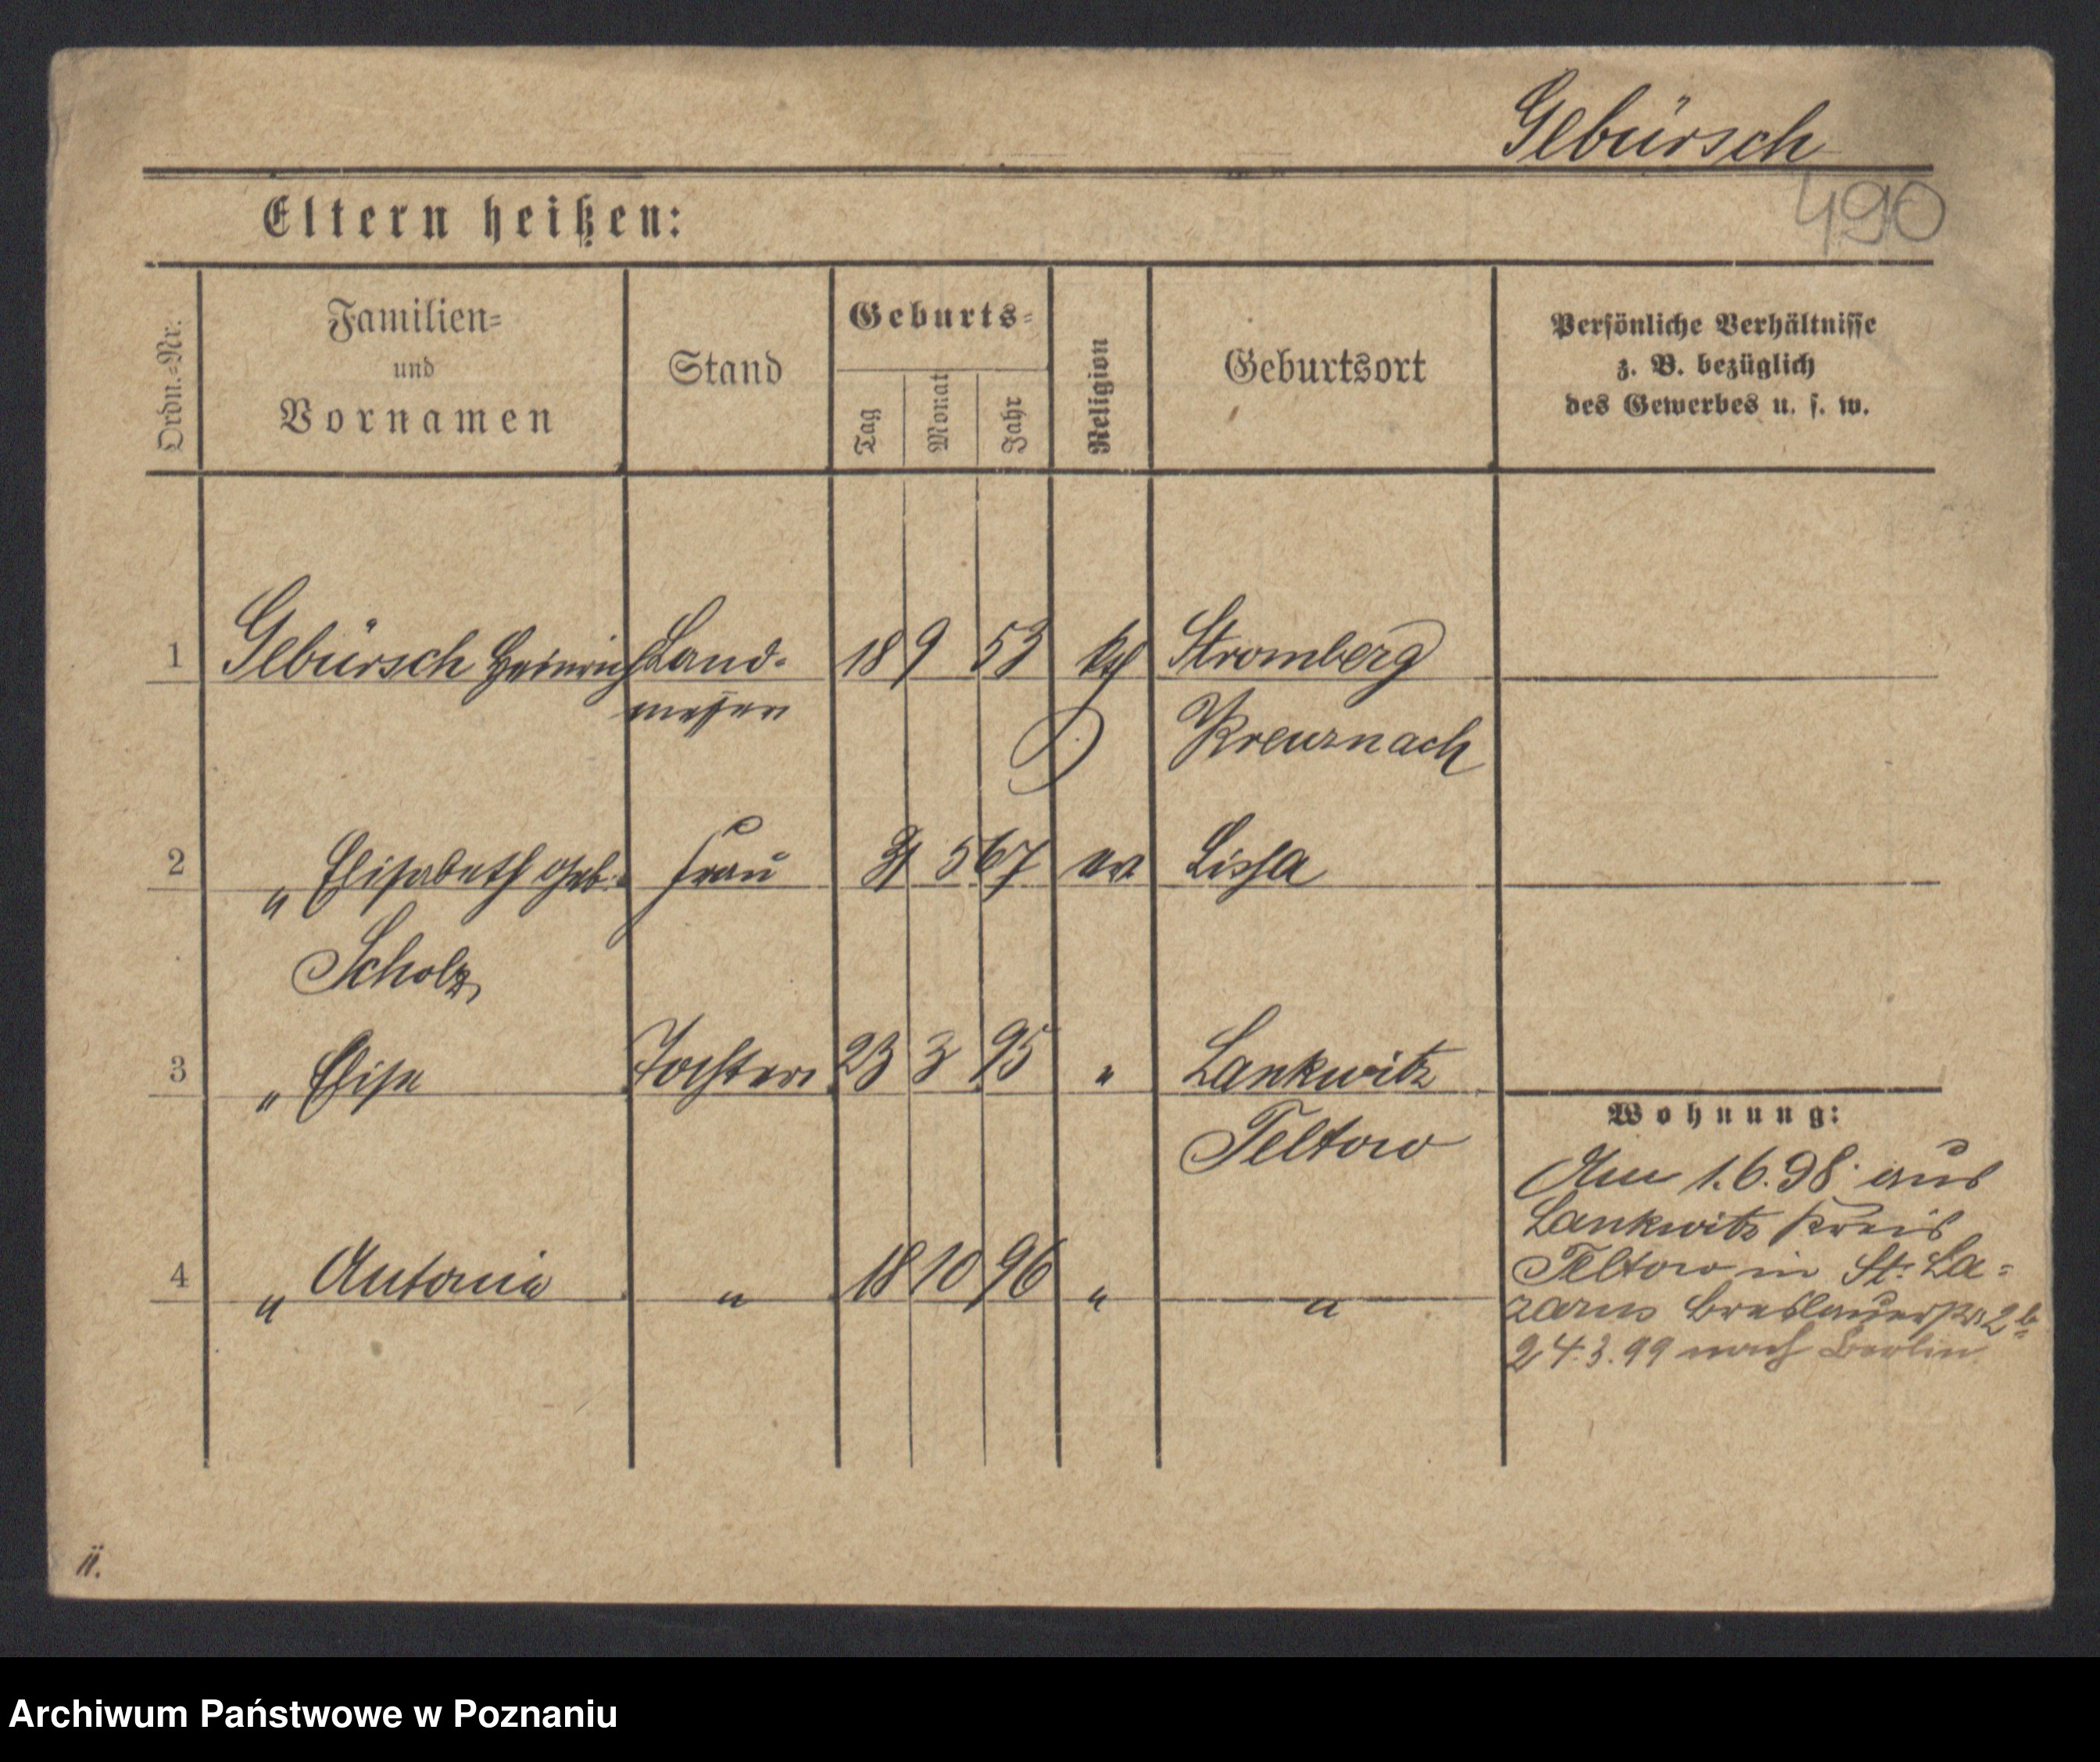 Gebürsch
490
Eltern heißen:
Ordn.-Nr.
Familien-
und
Vornamen
Stand
Geburts-
Tag
Monat
Jahr
Religion
Geburtsort
Persönliche Verhältnisse
z. B. bezüglich
des Gewerbes u. s. w.
1 Gebürsch Heinrich Land- 18 9 53 Stromberg
messer Kreuznach
2 " Elisabeth geb. Frau 5 67 ev Lissa
Scholz
3 " Elise Tochter 23 3 95 " Lankwitz
Teltow
Wohnung:
Am 1.6.98 aus
Lankwitz Kreis
4 " Antonie " 18 10 96 " "
Teltow in St. La=
zarus Breslauerstr. 2b
24.3.99 nach Berlin
ii.
Archiwum Państwowe w Poznaniu